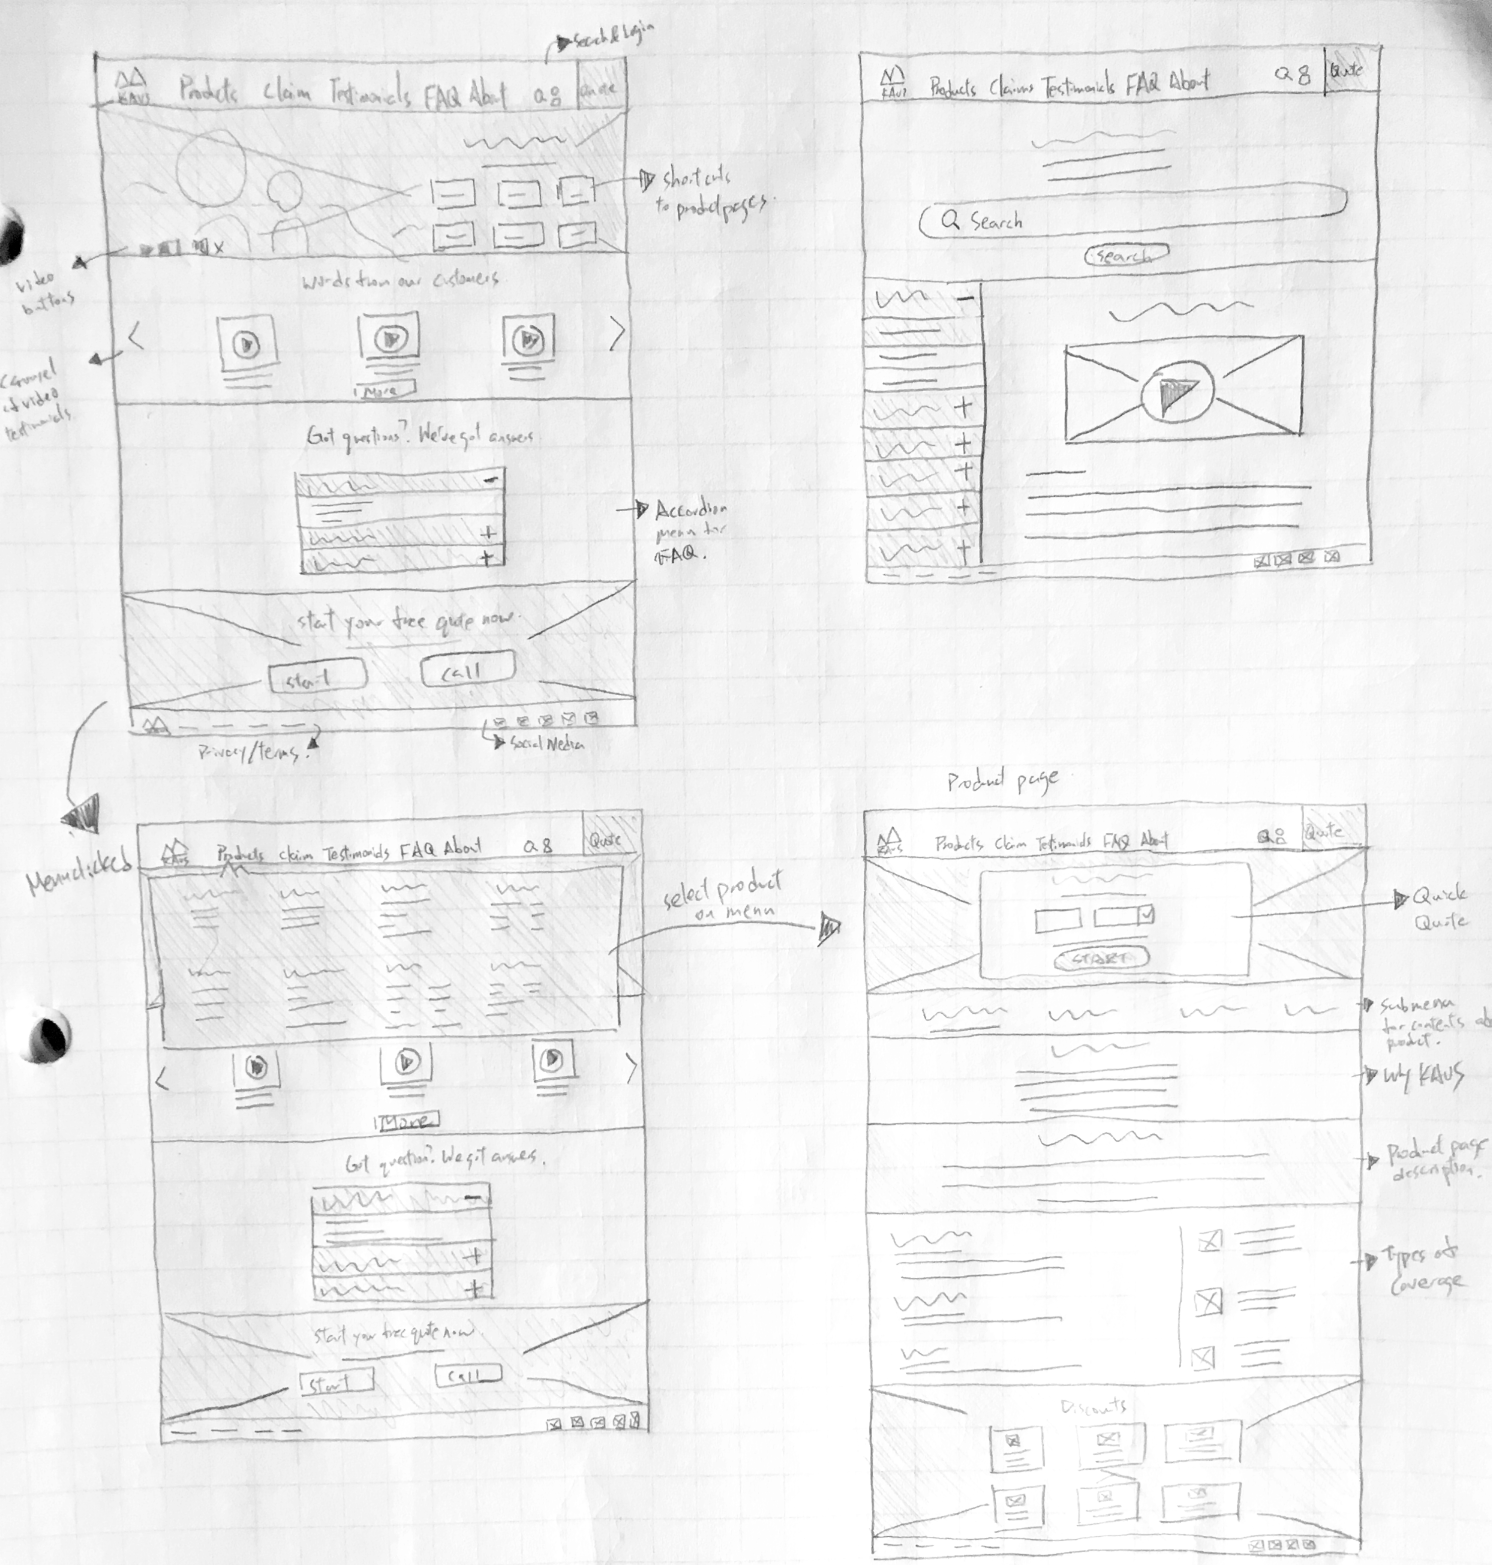 Search & Login
KAUS
Products Claim Testimonials FAQ About
Quote
Shortcuts
to product pages.
video
buttons
Words from our customers
Carousel
of video
testimonials
More
Got questions? We've got answers
Accordion
menu for
FAQ.
start your free quote now.
start
call
Privacy/terms.
Social Media
KAUS
Products Claims Testimonials FAQ About
Quote
Search
Search
Menu clicked
KAUS
Products Claim Testimonials FAQ About
Quote
select product
on menu
More
Got question? We got answers.
Start your free quote now
Start
Call
Product page
KAUS
Products Claims Testimonials FAQ About
Quote
START
Quick
Quote
Submenu
for contents
product.
Why KAUS
Product page
description.
Types of
Coverage
Discouts